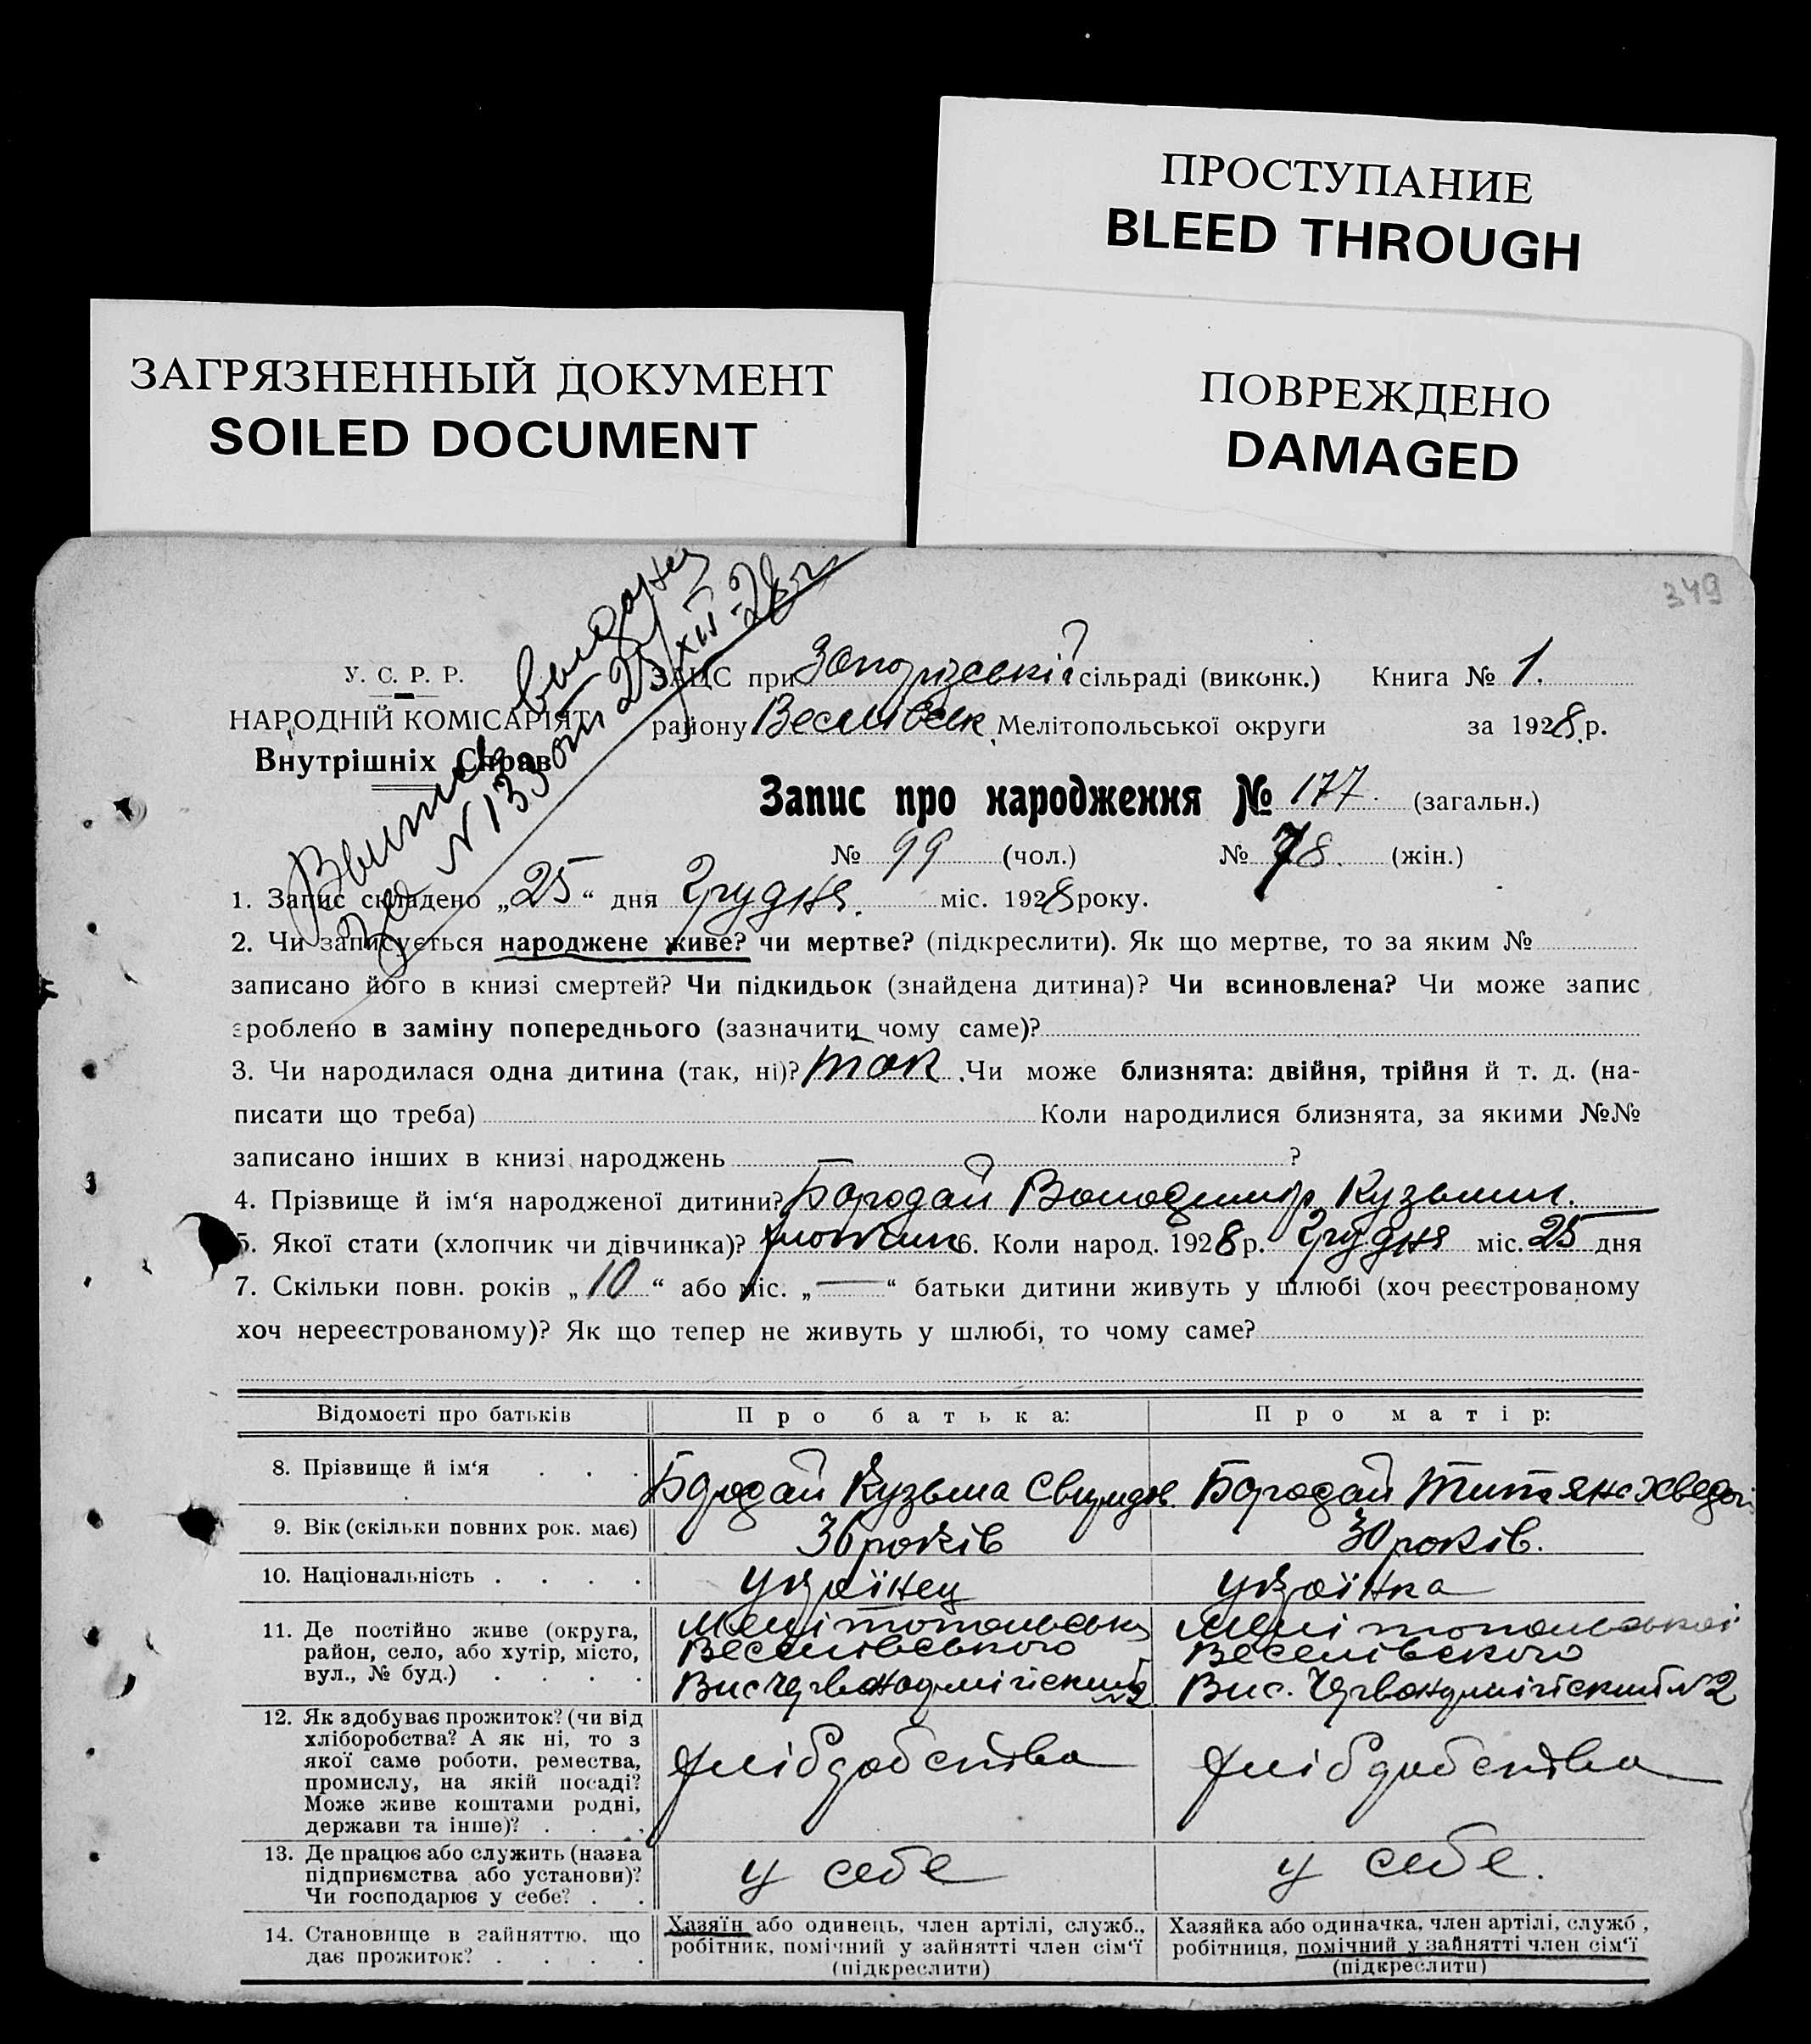 ПРОСТУПАНИЕ
BLEED THROUGH
ЗАГРЯЗНЕННЫЙ ДОКУМЕНТ
SOILED DOCUMENT
ПОВРЕЖДЕНО
DAMAGED
349
Выпись выдана
за N 133 от 25/XII-28 г
У. С. Р. Р.
НАРОДНІЙ КОМІСАРІЯТ
Внутрішніх Справ
ЗАЦС при Запорізській сільраді (виконк.) Книга № 1.
району Веселівськ Мелітопольської округи за 1928 р.
Запис про народження № 177. (загальн.)
№ 99 (чол.) № 78. (жін.)
1. Запис складено „25“ дня Грудня. міс. 1928 року.
2. Чи записується народжене живе? чи мертве? (підкреслити). Як що мертве, то за яким №
записано його в книзі смертей? Чи підкидьок (знайдена дитина)? Чи всиновлена? Чи може запис
зроблено в заміну попереднього (зазначити чому саме)?
3. Чи народилася одна дитина (так, ні)? так. Чи може близнята: двійня, трійня й т. д. (на-
писати що треба) Коли народилися близнята, за якими №№
записано інших в книзі народжень ?
4. Прізвище й ім‘я народженої дитини? Бородай Володимир Кузьмич.
5. Якої стати (хлопчик чи дівчинка)? 6. Коли народ. 1928 р. Грудня міс. 25 дня
7. Скільки повн. років „10“ або міс. „—“ батьки дитини живуть у шлюбі (хоч реєстрованому
хоч нереєстрованому)? Як що тепер не живуть у шлюбі, то чому саме?
Відомості про батьків Про батька: Про матір:
8. Прізвище й ім‘я . . . Бородай Кузьма Бородай Титяна Хведор
9. Вік (скільки повних рок. має) 36 років 30 років.
10. Національність . . . . українец українка
11. Де постійно живе (округа,
район, село, або хутір, місто,
вул., № буд.) . . . .
Мелітопольськ
Веселівського
Вис
Мелітопольської
Веселівского
Вис. N2
12. Як здобуває прожиток? (чи від
хліборобства? А як ні, то з
якої саме роботи, ремества,
промислу, на якій посаді?
Може живе коштами родні,
держави та інше)? . . .
хлібробства хлібробства
13. Де працює або служить (назва
підприємства або установи)?
Чи господарює у себе? . .
у себе у себе.
14. Становище в зайняттю, що
дає прожиток? . . . .
Хазяїн або одинець, член артілі, служб.,
робітник, помічний у зайнятті член сім‘ї
(підкреслити)
Хазяйка або одиначка, член артілі, служб,
робітниця, помічний у зайнятті член сім‘ї
(підкреслити)